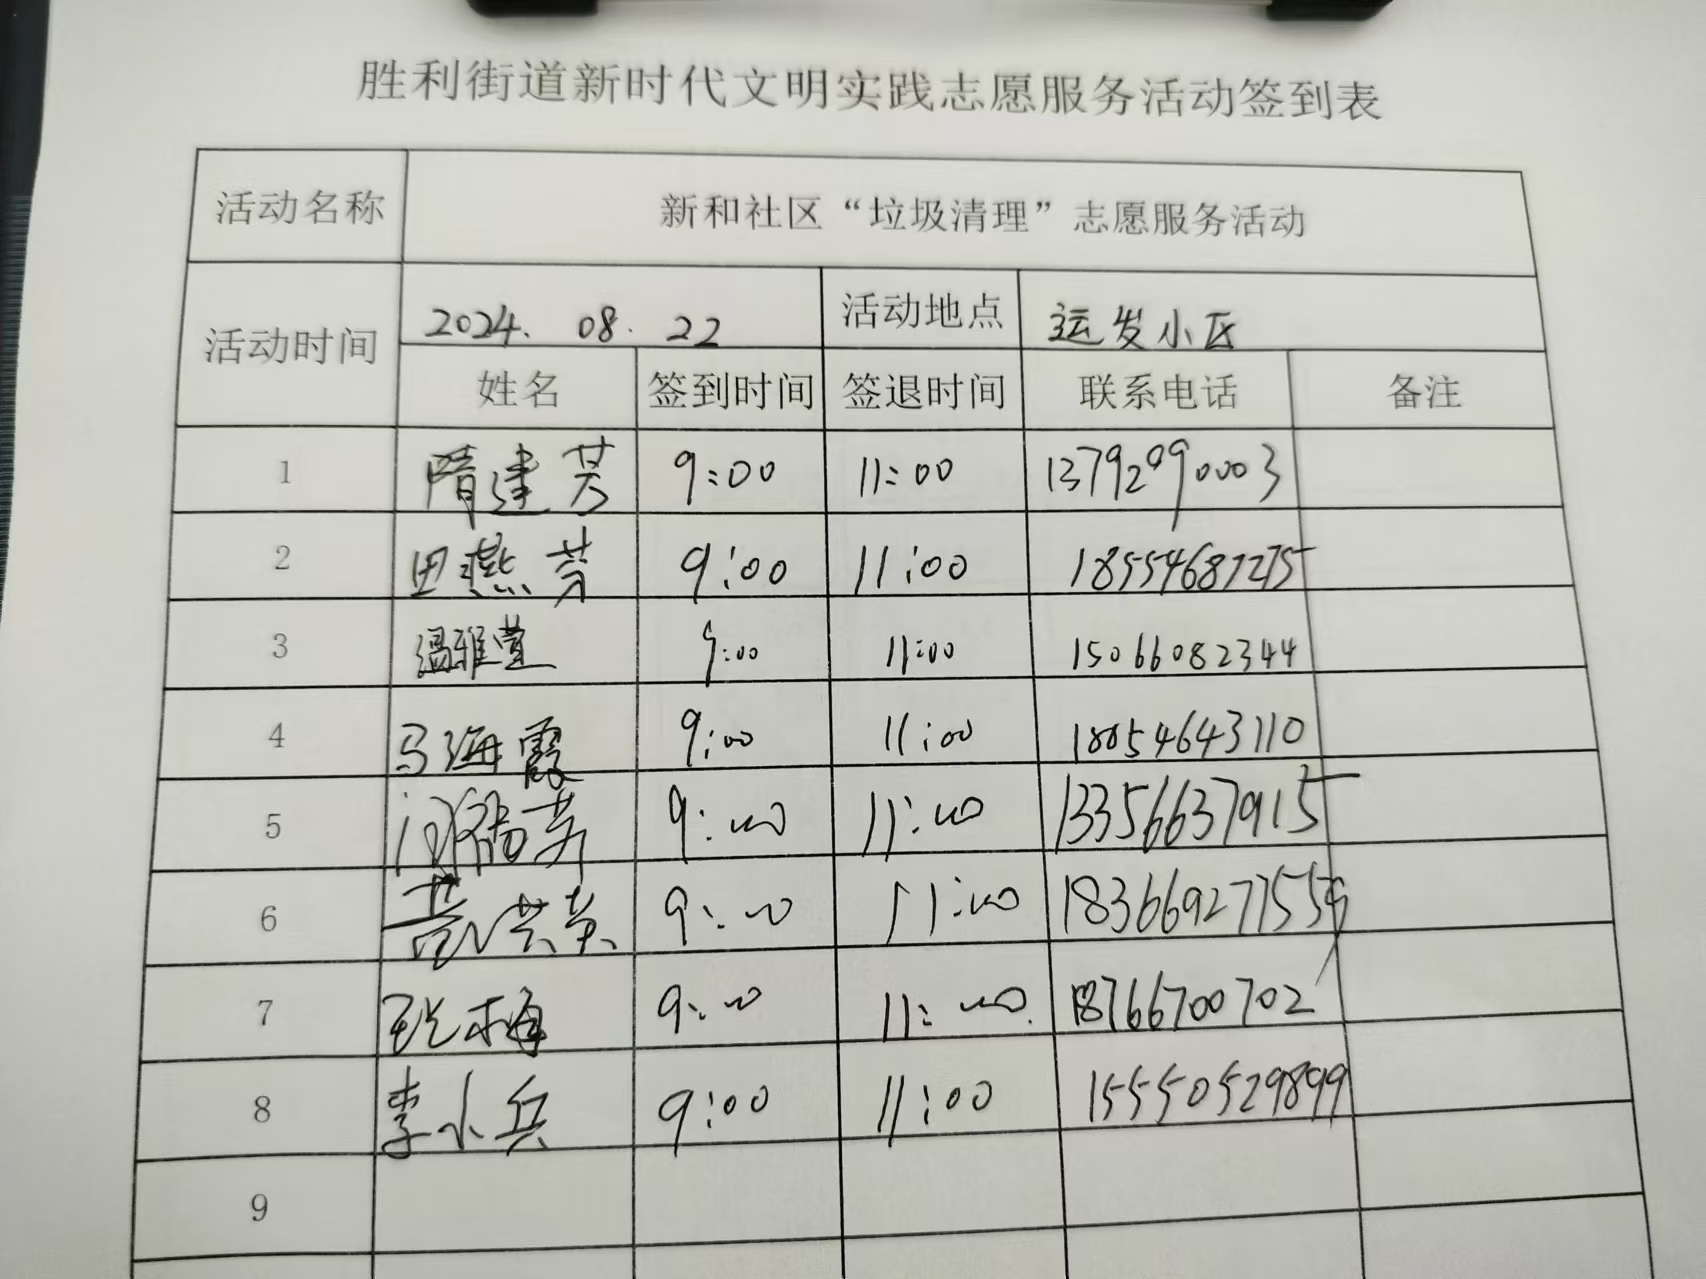 胜利街道新时代文明实践志愿服务活动签到表
活动名称 新和社区“垃圾清理”志愿服务活动
活动时间 2024.08.22 活动地点 运发小区
姓名 签到时间 签退时间 联系电话 备注
1 隋建芳 9:00 11:00 13792090003
2 田燕芳 9:00 11:00 18554687275
3 温雅萱 9:00 11:00 15066082344
4 马海霞 9:00 11:00 18054643110
5 9:00 11:00 13356637915
6 9:00 11:00
7 张梅 9:00 11:00 18766700702
8 李小兵 9:00 11:00 15550529899
9